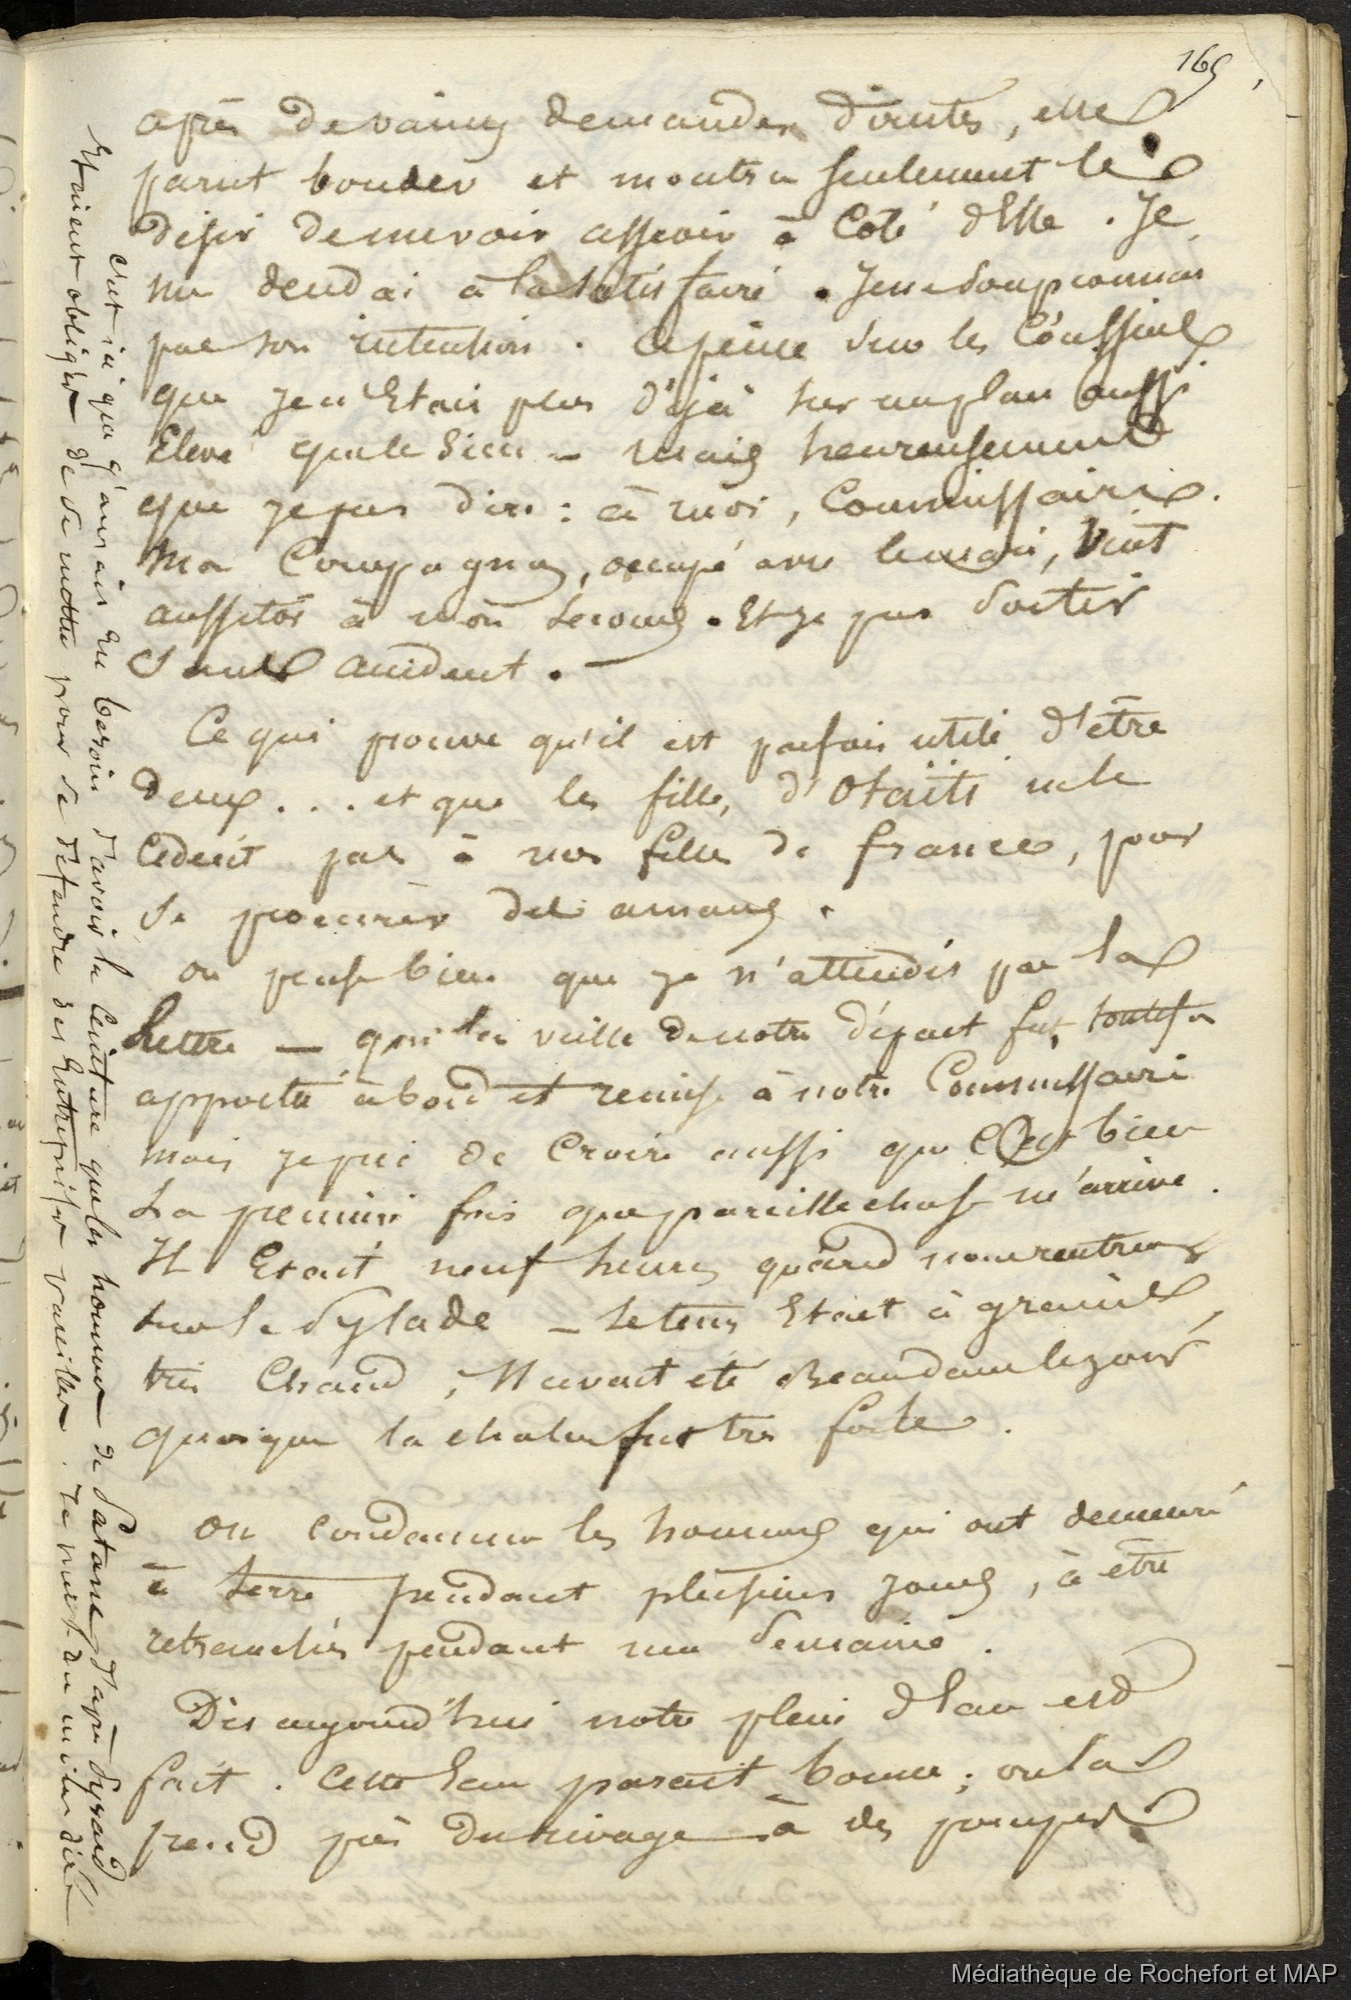 165
après de vains demandes directes, elle
parut bouder et montra seulement le
desir de me voir asseoir à Coté d'Elle. Je
me rendai à la satisfaire. Je ne soupçonnai
pas son intention. a peine sur les Coussins
que j'en Etais plus déjà sur un plan aussi
Elevé que le sien - mais heureusement
que je pus dire: à moi, Commissaire.
Mon Compagnon, occupé avec le mari, vint
aussitôt à mon secours. Et je pus sortir
sans accident. —
Ce qui prouve qu'il est parfois utile d'être
deux... et que les filles d'Otaïti ne le
cedent pas à nos filles de france, pour
se procurer des amans.
on pense bien que je n'attendis pas la
lettre — qui la veille de notre départ fut toutefois
apportée à bord et remise à notre Commissaire
mais je prie de Croire aussi que C'est bien
la premiere fois que pareille chose m'arrive.
Il Etait neuf heures quand nous rentrames
sur le Pylade - le tems Etait à grains,
très Chaud, Il avait été Beau dans le jour
quoique la chaleur fut très forte.
on condamna les hommes qui ont demeuré
à terre pendant plusieurs jours, à être
retranchés pendant une semaine.
Dès aujourd'hui notre plein d'Eau est
fait. Cette Eau parait bonne; on la
prend près du rivage à des pompes
C'est ici que j'aurais eu besoin d'avoir la Ceinture que les hommes de Patane, d'après Pyrard
Etaient obligés de se mettre pour se défendre des Entreprises pareilles. Je puis du moins dire
Médiathèque de Rochefort et MAP